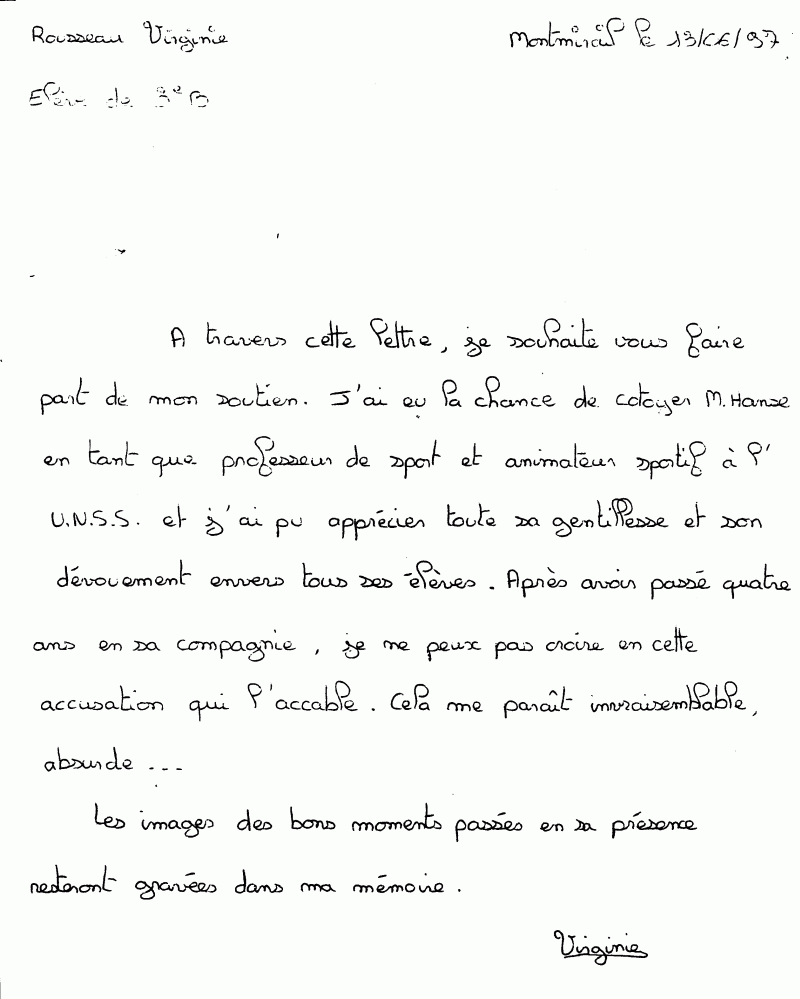 Rousseau Virginie
Montmirail le 13/06/97
Elève de 3e B
A travers cette lettre, je souhaite vous faire
part de mon soutien. J'ai eu la chance de cotoyer M. Hanse
en tant que professeur de sport et animateur sportif à l'
U.N.S.S. et j'ai pu apprécier toute sa gentillesse et son
dévouement envers tous ses élèves. Après avoir passé quatre
ans en sa compagnie, je ne peux pas croire en cette
accusation qui l'accable. Cela me paraît invraisemblable,
absurde ...
Les images des bons moments passés en sa présence
resteront gravées dans ma mémoire.
Virginie